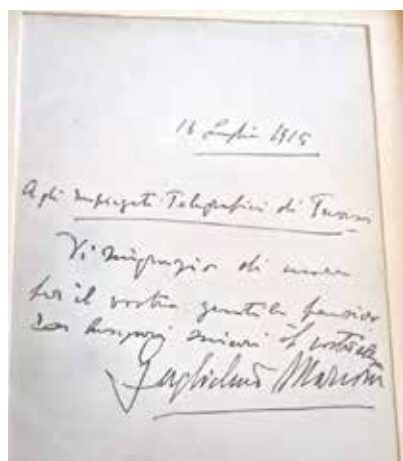 16 Luglio 1915
Agli Impiegati Telegrafici di Torino
Vi ringrazio di cuore
per il vostro gentile pensiero
con auguri sinceri il vostro
Guglielmo Marconi